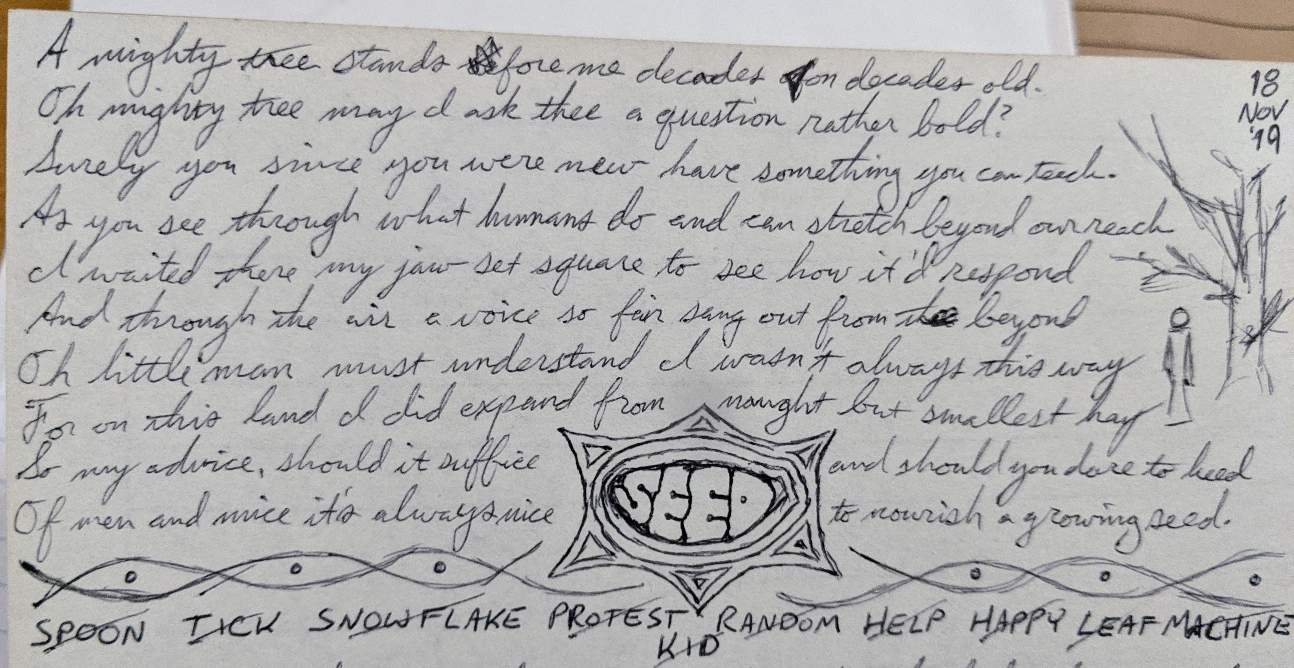 A mighty tree stands before me decades on decades old.
Oh mighty tree may I ask thee a question rather bold?
Surely you since you were new have something you can teach.
As you see through what humans do and can stretch beyond our reach
I waited there my jaw set square to see how it'd respond
And through the air a voice so fair sang out from the beyond
Oh little man must understand I wasn't always this way
For on this land I did expand from naught but smallest hay
So my advice, should it suffice and should you dare to heed
Of men and mice it's always nice to nourish a growing seed.
18
NOV
'19
SEED
SPOON TICK SNOWFLAKE PROTEST RANDOM HELP HAPPY LEAF MACHINE
KID